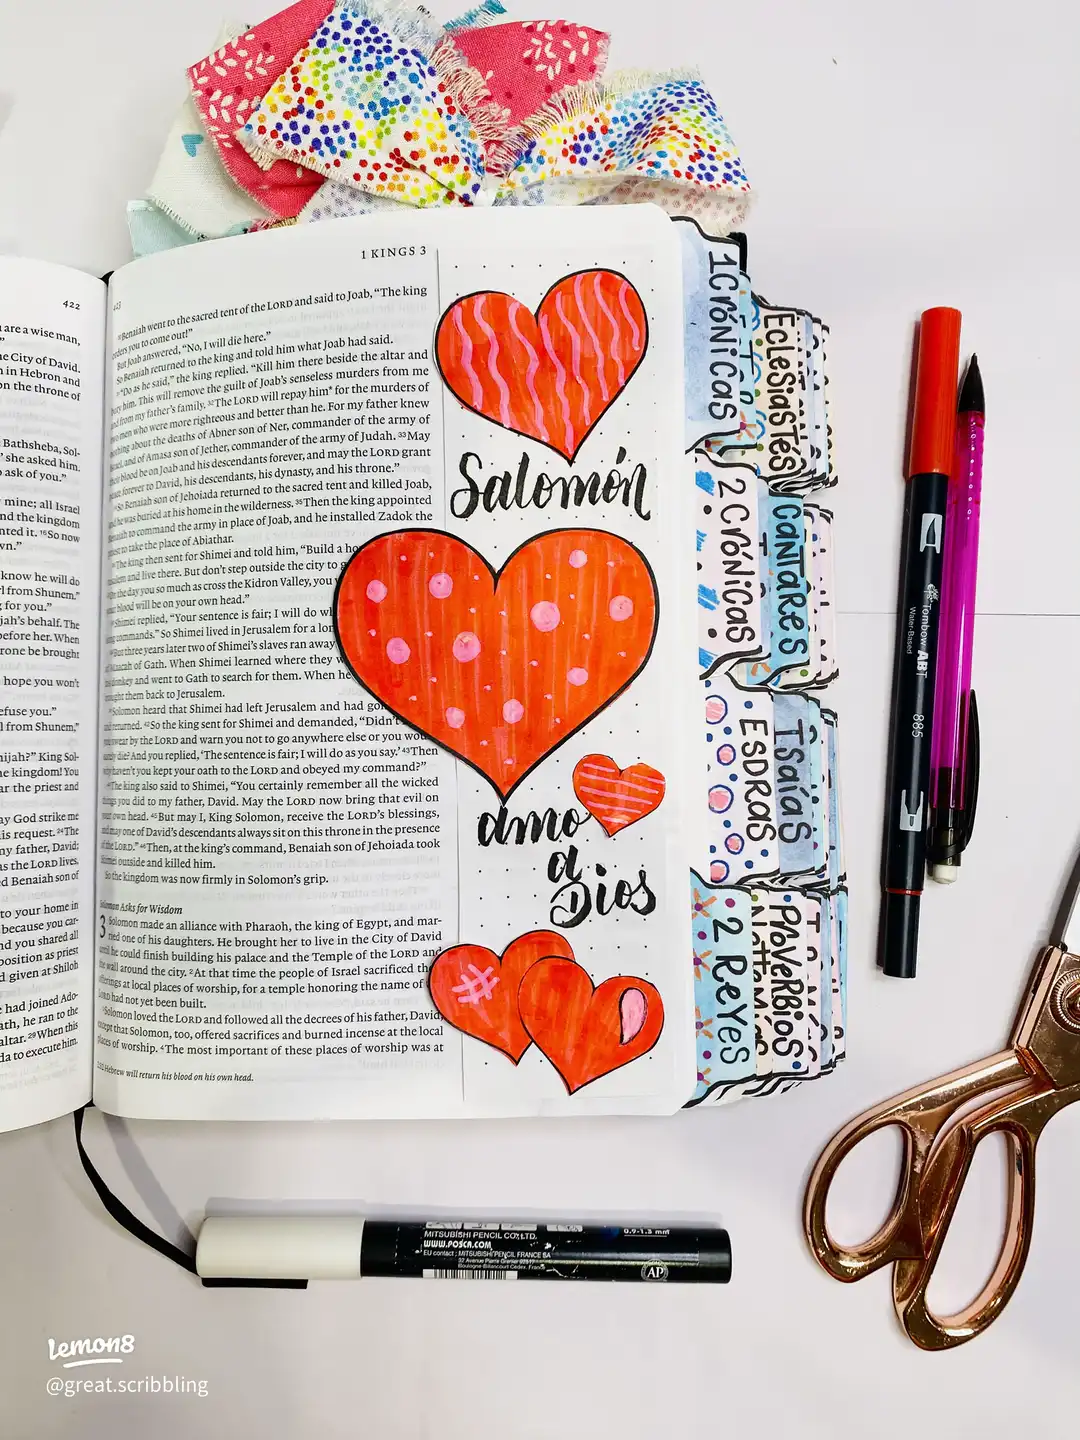 422
are a wise man,
he City of David.
in Hebron and
on the throne of
Bathsheba, Sol-
she asked him.
ask of you."
mine; all Israel
nd the kingdom
nted it. ¹⁶So now
wn."
know he will do
rl from Shunem."
g for you."
jah's behalf. The
before her. When
rone be brought
hope you won't
efuse you."
l from Shunem,"
nijah?" King Sol-
he kingdom! You
ar the priest and
ay God strike me
is request. ²⁴The
my father, David;
as the LORD lives,
ed Benaiah son of
to your home in
because you car-
nd you shared all
position as priest
d given at Shiloh
had joined Ado-
ath, he ran to the
altar. ²⁹When this
da to execute him.
1 KINGS 3
Benaiah went to the sacred tent of the LORD and said to Joab, "The king
orders you to come out!"
But Joab answered, "No, I will die here."
So Benaiah returned to the king and told him what Joab had said.
"Do as he said," the king replied. "Kill him there beside the altar and
bury him. This will remove the guilt of Joab's senseless murders from me
and from my father's family. ³²The LORD will repay him* for the murders of
two men who were more righteous and better than he. For my father knew
nothing about the deaths of Abner son of Ner, commander of the army of
Israel, and of Amasa son of Jether, commander of the army of Judah. ³³May
their blood be on Joab and his descendants forever, and may the LORD grant
peace forever to David, his descendants, his dynasty, and his throne."
So Benaiah son of Jehoiada returned to the sacred tent and killed Joab,
and he was buried at his home in the wilderness. ³⁵Then the king appointed
Benaiah to command the army in place of Joab, and he installed Zadok the
priest to take the place of Abiathar.
The king then sent for Shimei and told him, "Build a ho
Jerusalem and live there. But don't step outside the city to g
the day you so much as cross the Kidron Valley, you
your blood will be on your own head."
Shimei replied, "Your sentence is fair; I will do wh
commands." So Shimei lived in Jerusalem for a lon
But three years later two of Shimei's slaves ran away
of Maacah of Gath. When Shimei learned where they w
his donkey and went to Gath to search for them. When he
brought them back to Jerusalem.
Solomon heard that Shimei had left Jerusalem and had gon
returned. ⁴²So the king sent for Shimei and demanded, "Didn't
swear by the LORD and warn you not to go anywhere else or you wou
surely die? And you replied, 'The sentence is fair; I will do as you say.' ⁴³Then
why haven't you kept your oath to the LORD and obeyed my command?"
The king also said to Shimei, "You certainly remember all the wicked
things you did to my father, David. May the LORD now bring that evil on
your own head. ⁴⁵But may I, King Solomon, receive the LORD's blessings,
and may one of David's descendants always sit on this throne in the presence
of the LORD." ⁴⁶Then, at the king's command, Benaiah son of Jehoiada took
Shimei outside and killed him.
So the kingdom was now firmly in Solomon's grip.
Solomon Asks for Wisdom
3 Solomon made an alliance with Pharaoh, the king of Egypt, and mar-
ried one of his daughters. He brought her to live in the City of David
until he could finish building his palace and the Temple of the LORD and
the wall around the city. ²At that time the people of Israel sacrificed the
offerings at local places of worship, for a temple honoring the name of
LORD had not yet been built.
Solomon loved the LORD and followed all the decrees of his father, David,
except that Solomon, too, offered sacrifices and burned incense at the local
places of worship. ⁴The most important of these places of worship was at
Hebrew will return his blood on his own head.
Salomón
amo
a
Dios
1 Crónicas
2 Crónicas
ESDRAS
2 Reyes
Eclesiastés
Cantares
Isaías
Proverbios
Tombow ABT
Water-Based
885
MITSUBISHI PENCIL CO., LTD.
WWW.POSCA.COM
EU contact : MITSUBISHI PENCIL FRANCE SA
0.9-1.3 mm
AP
Lemon8
@great.scribbling